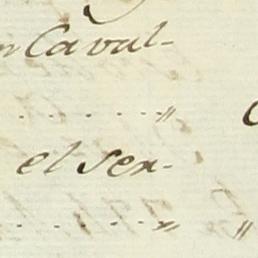 n Caval-
. . . . . . „
el ser-
. . . . . . „ „